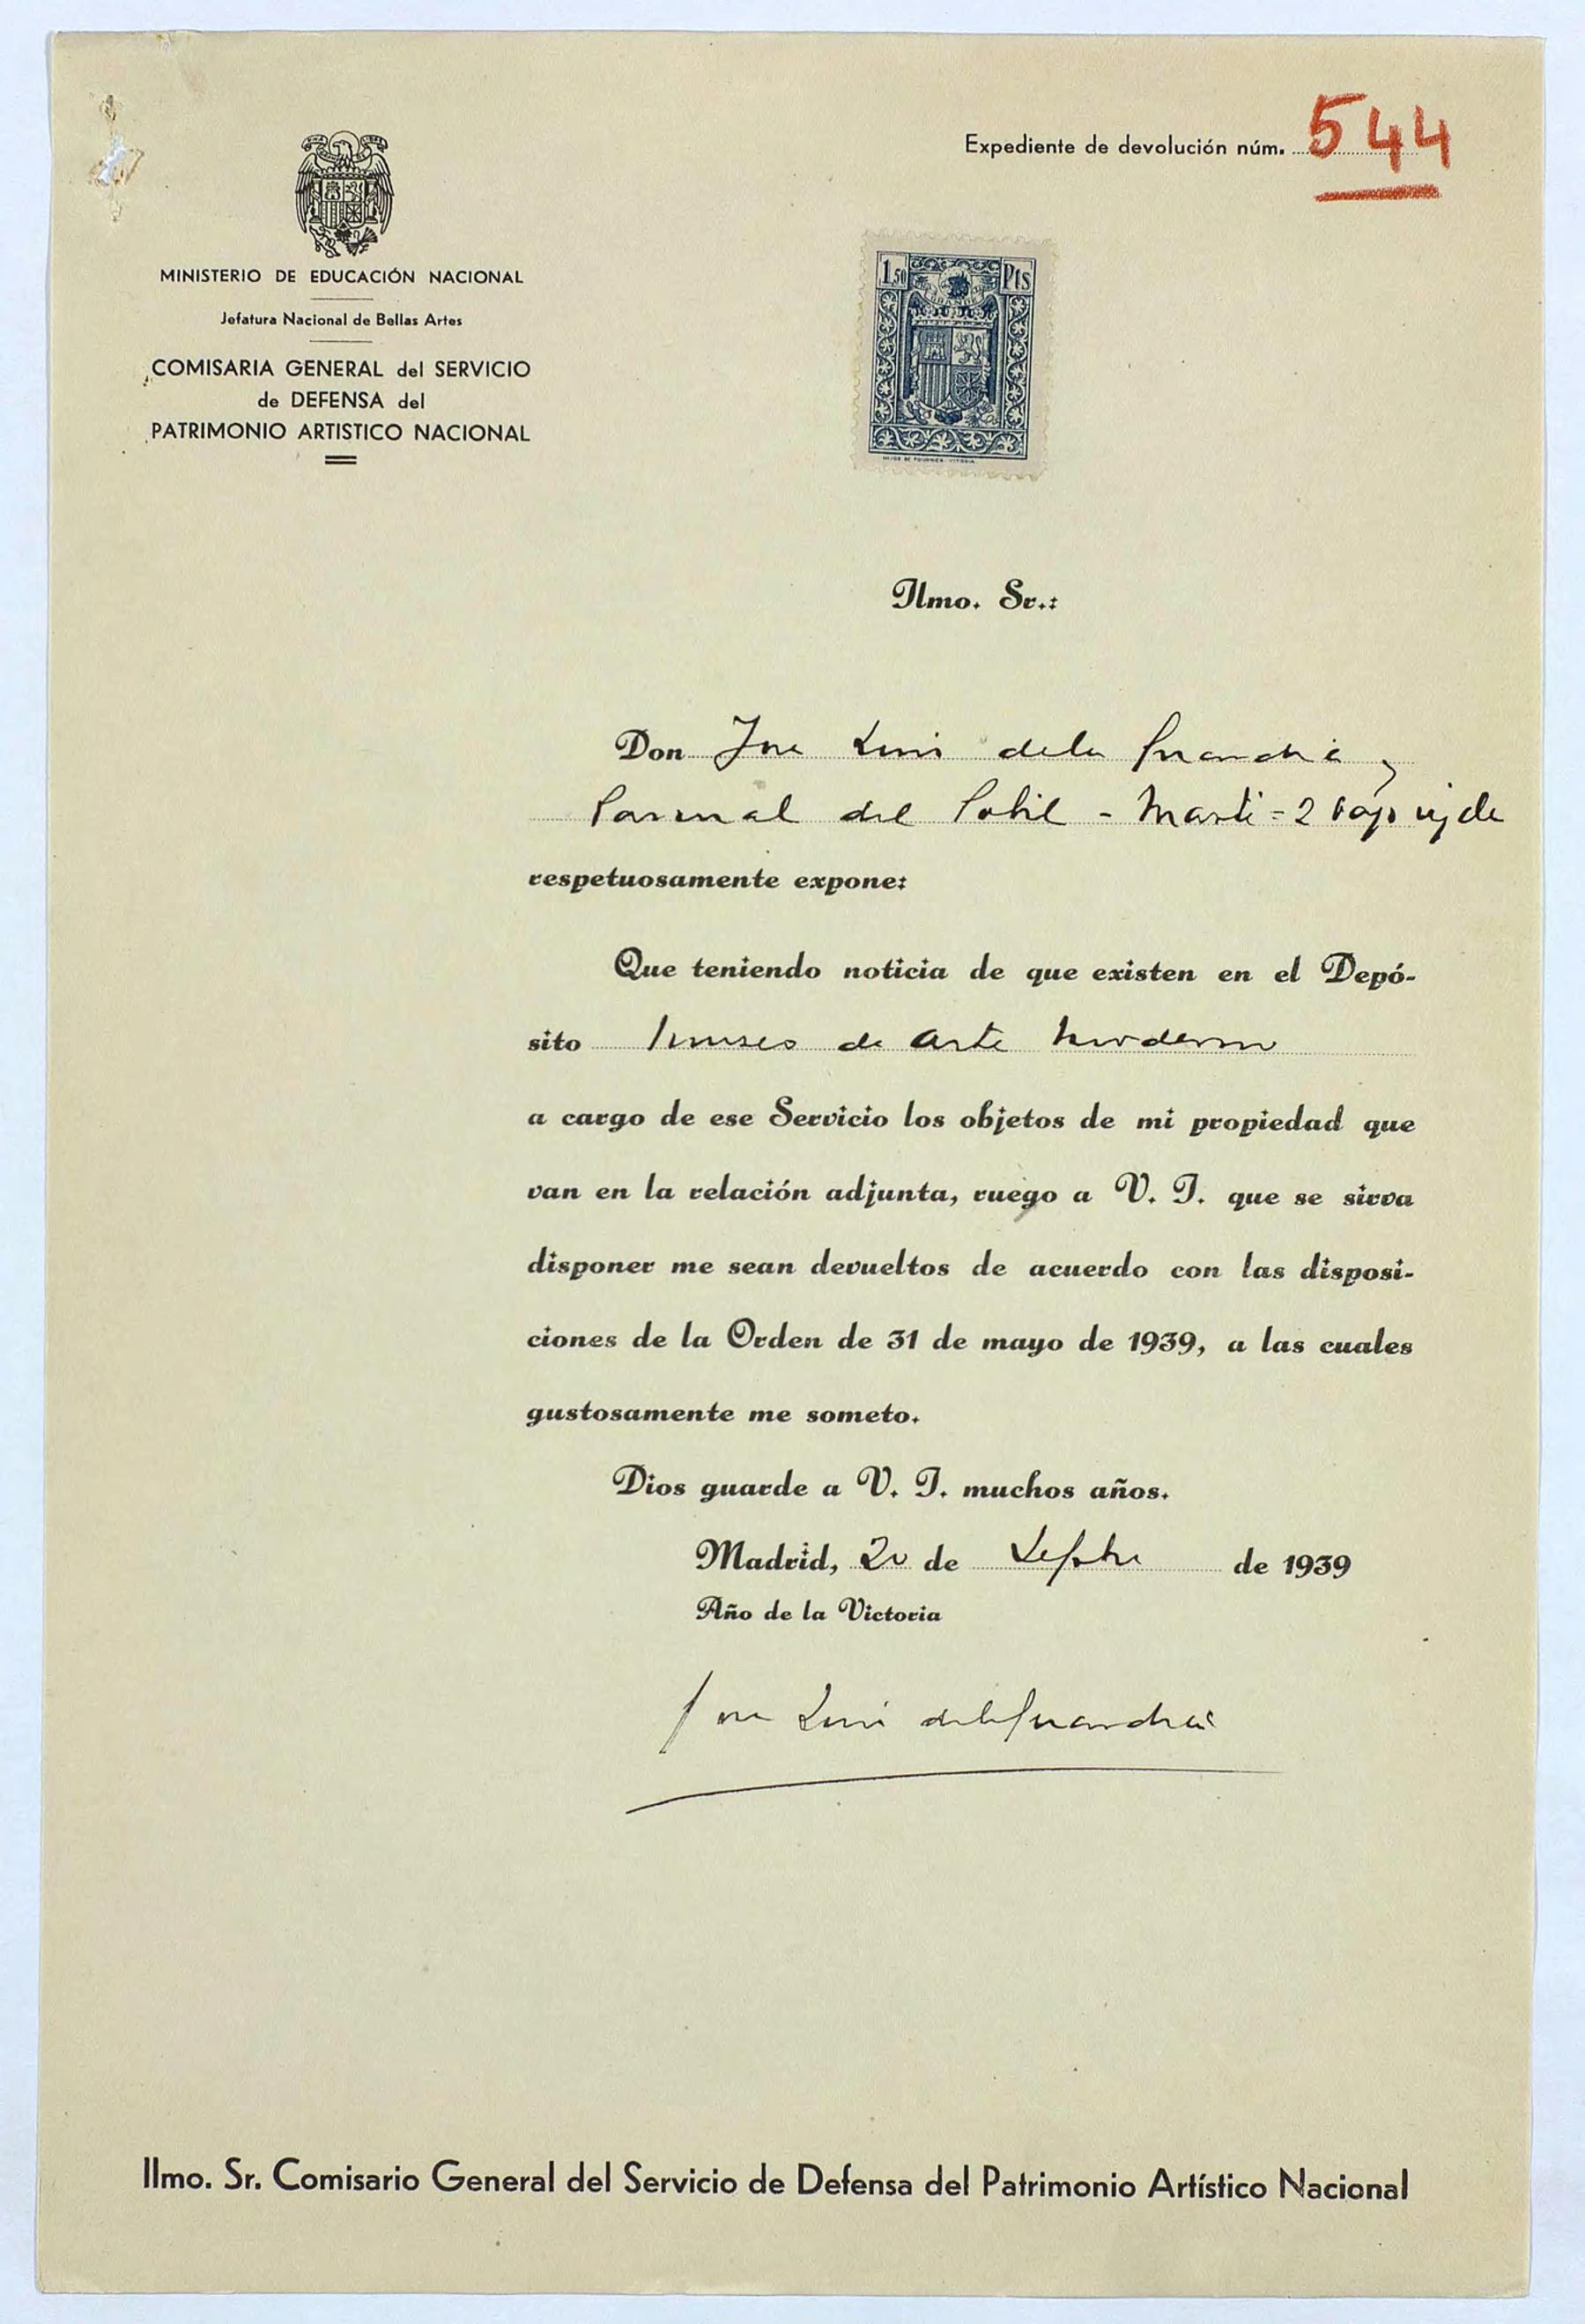 Expediente de devolución núm. 544
MINISTERIO DE EDUCACIÓN NACIONAL
Jefatura Nacional de Bellas Artes
COMISARIA GENERAL del SERVICIO
de DEFENSA del
PATRIMONIO ARTISTICO NACIONAL
1,50 Pts
Ilmo. Sr.:
Don Jose Luis de la Guardia y
Pascual del Pobil - Marti = 2
respetuosamente expone:
Que teniendo noticia de que existen en el Depó-
sito Museo de Arte Moderno
a cargo de ese Servicio los objetos de mi propiedad que
van en la relación adjunta, ruego a V. I. que se sirva
disponer me sean devueltos de acuerdo con las disposi-
ciones de la Orden de 31 de mayo de 1939, a las cuales
gustosamente me someto.
Dios guarde a V. I. muchos años.
Madrid, 20 de Sepbre de 1939
Año de la Victoria
Jose Luis de la Guardia
Ilmo. Sr. Comisario General del Servicio de Defensa del Patrimonio Artístico Nacional